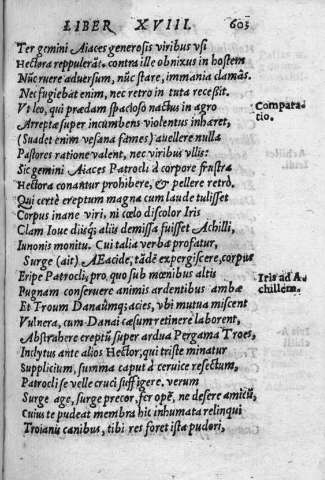 LIBER XVIII. 603
Ter gemini Aiaces generosis viribus vsi
Hectora reppulerāt. contra ille obnixus in hostem
Nūc ruere aduersum, nūc stare, immania clamās.
Nec fugiebat enim, nec retro in tuta recessit.
Vt leo, qui prædam spacioso nactus in agro
Arreptæ super incumbens violentus inhæret,
(Suadet enim vesana fames) auellere nulla
Pastores ratione valent, nec viribus vllis:
Sic gemini Aiaces Patrocli à corpore frustra
Hectora conantur prohibere, & pellere retrò.
Qui certè ereptum magna cum laude tulisset
Corpus inane viri, ni cœlo discolor Iris
Clam Ioue diisq; aliis demissa fuisset Achilli,
Iunonis monitu. Cui talia verba profatur,
Surge (ait) AEacide, tādē expergiscere, corpus
Eripe Patrocli, pro, quo sub mœnibus altis
Pugnam conseruere animis ardentibus ambæ
Et Troum Danaûmq; acies, vbi mutua miscent
Vulnera, cum Danai cæsum retinere laborent,
Abstrahere ereptū super ardua Pergama Troes,
Inclytus ante alios Hector, qui triste minatur
Supplicium, summa caput à ceruice resectum,
Patrocli se velle cruci suffigere. verum
Surge age, surge precor, fer opē, ne desere amicū,
Cuius te pudeat membra hic inhumata relinqui
Troianis canibus, tibi res foret ista pudori,
Compara-
tio.
Iris ad A-
chillem.